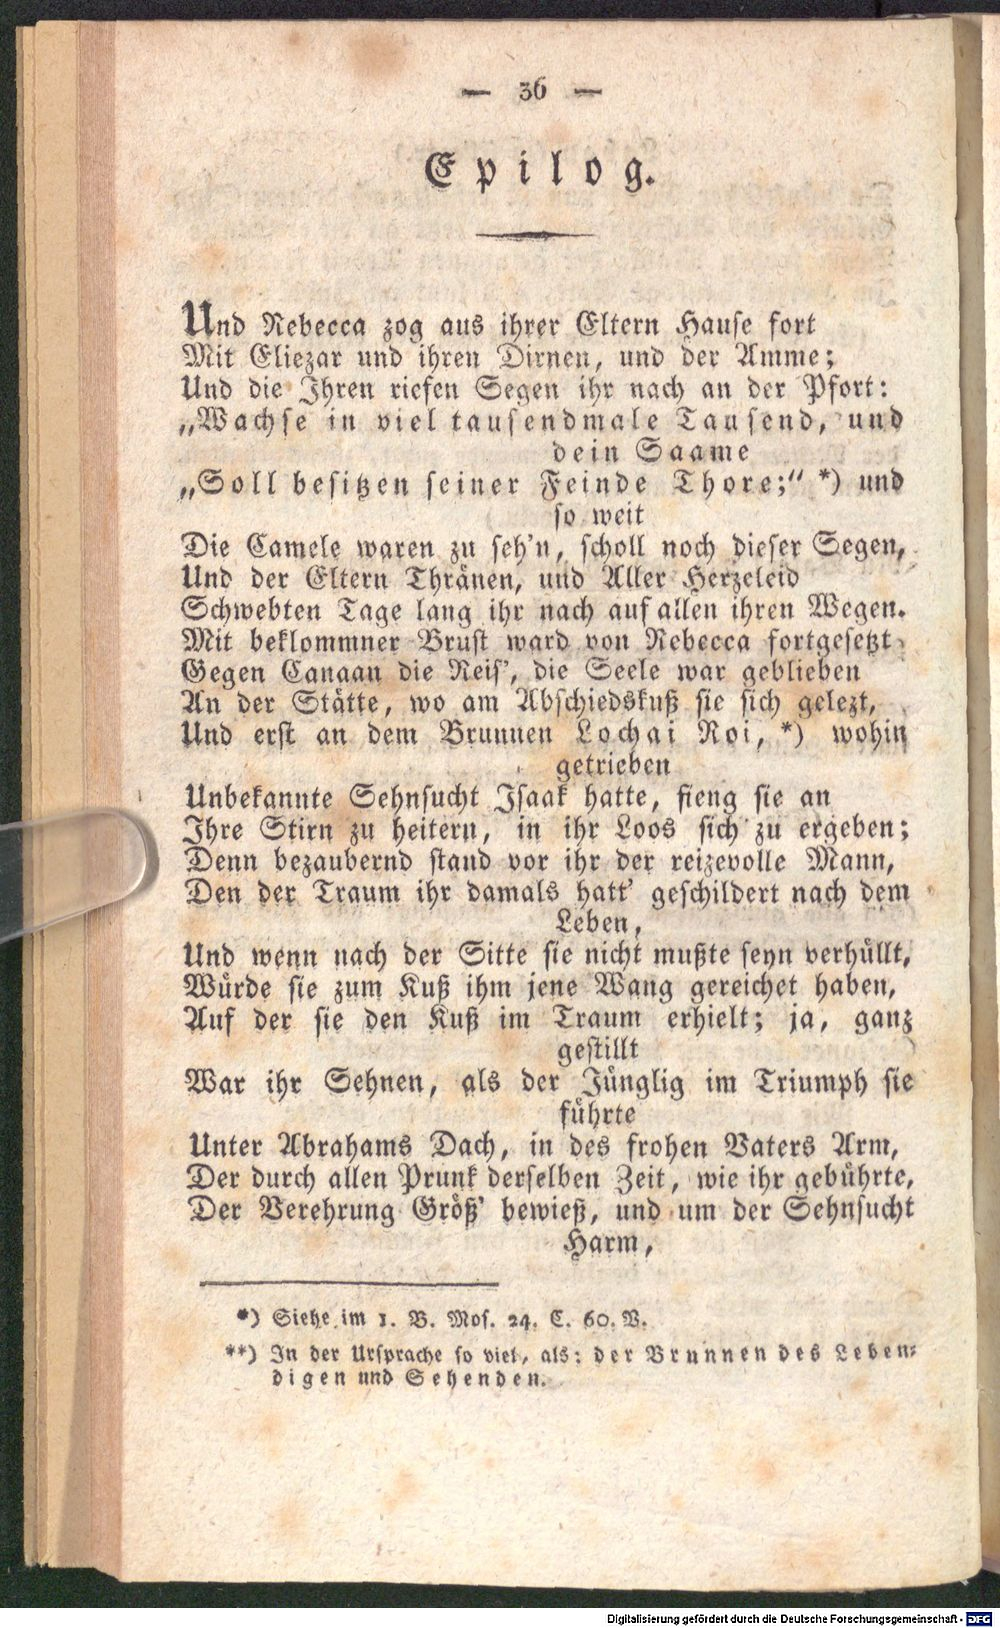 — 36 —
Epilog.
Und Rebecca zog aus ihrer Eltern Hause fort
Mit Eliezar und ihren Dirnen, und der Amme;
Und die Ihren riefen Segen ihr nach an der Pfort:
„Wachse in viel tausendmale Tausend, und
dein Saame
„Soll besitzen seiner Feinde Thore;“ *) und
so weit
Die Camele waren zu seh'n, scholl noch dieser Segen,
Und der Eltern Thränen, und Aller Herzeleid
Schwebten Tage lang ihr nach auf allen ihren Wegen.
Mit beklommner Brust ward von Rebecca fortgesetzt
Gegen Canaan die Reis', die Seele war geblieben
An der Stätte, wo am Abschiedskuß sie sich gelezt,
Und erst an dem Brunnen Lochai Roi, *) wohin
getrieben
Unbekannte Sehnsucht Isaak hatte, fieng sie an
Ihre Stirn zu heitern, in ihr Loos sich zu ergeben;
Denn bezaubernd stand vor ihr der reizevolle Mann,
Den der Traum ihr damals hatt' geschildert nach dem
Leben,
Und wenn nach der Sitte sie nicht mußte seyn verhüllt,
Würde sie zum Kuß ihm jene Wang gereichet haben,
Auf der sie den Kuß im Traum erhielt; ja, ganz
gestillt
War ihr Sehnen, als der Jünglig im Triumph sie
führte
Unter Abrahams Dach, in des frohen Vaters Arm,
Der durch allen Prunk derselben Zeit, wie ihr gebührte,
Der Verehrung Größ' bewieß, und um der Sehnsucht
Harm,
*) Siehe im 1. B. Mos. 24. C. 60. V.
**) In der Ursprache so viel, als: der Brunnen des Leben-
digen und Sehenden.
Digitalisierung gefördert durch die Deutsche Forschungsgemeinschaft - DFG